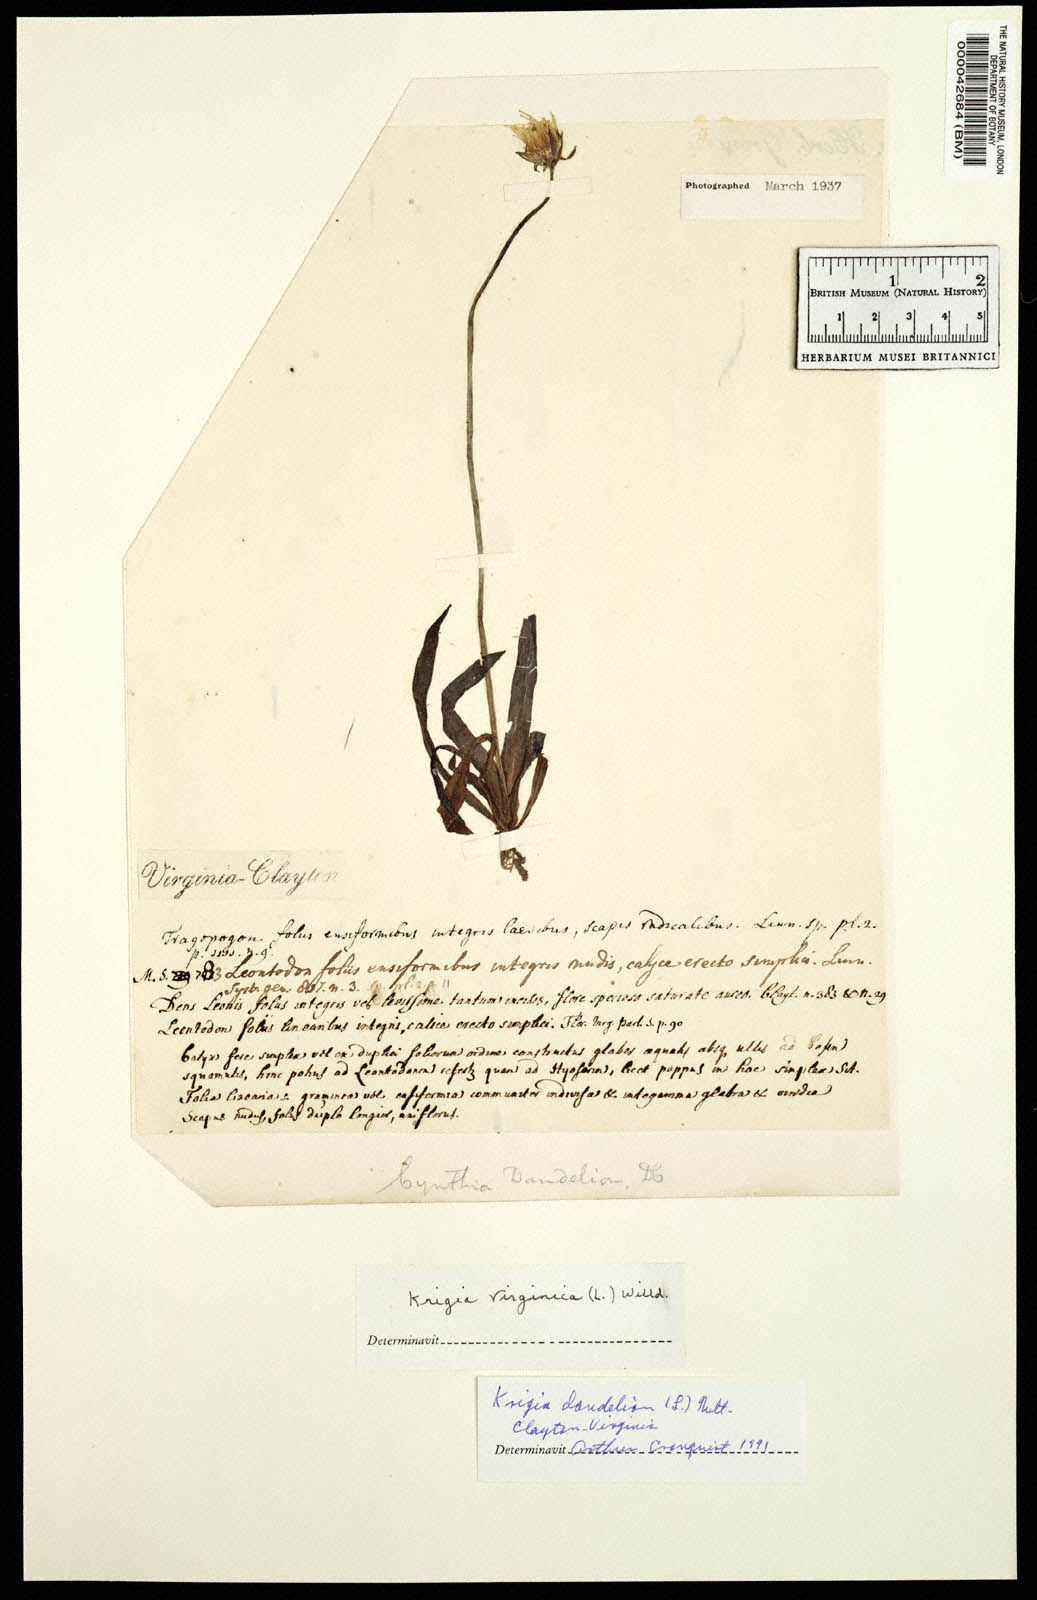 THE NATURAL HISTORY MUSEUM, LONDON
DEPARTMENT OF BOTANY
000042684 (BM)
Photographed March 1937
1 2
BRITISH MUSEUM (NATURAL HISTORY)
1 2 3 4 5
HERBARIUM MUSEI BRITANNICI
Virginia-Clayton
Tragopogon foliis ensiformibus integris laevibus, scapis radicalibus. Linn. sp. pl. 2.
p. 1111. n. 9.
M. S. 783 Leontodon foliis ensiformibus integris nudis, calyce erecto simplici. Linn.
Syst. gen. 867. n. 3.
Dens Leonis foliis integris vel levissime tantum incisis, flore specioso saturate aureo. Clayt. n. 383 & n. 29
Leontodon foliis linearibus integris, calice erecto simplici. Flor. Virg. part. 2. p. 90
Calyx fere simplex vel ex duplici foliorum ordine constructus glaber aequalis absq. ullis ad basin
squamulis, hinc potius ad Leontodonem quam ad Hyoserin, licet pappus in hac simplex sit.
Folia linearia graminea vel ensiformia communiter indivisa & integerrima glabra & viridia
Scapus nudus, foliis duplo longior, uniflorus.
Cynthia Dandelion, DC
Krigia virginica (L.) Willd.
Determinavit
Krigia dandelion (L.) Nutt.
Clayton-Virginia
Determinavit Arthur Cronquist 1991